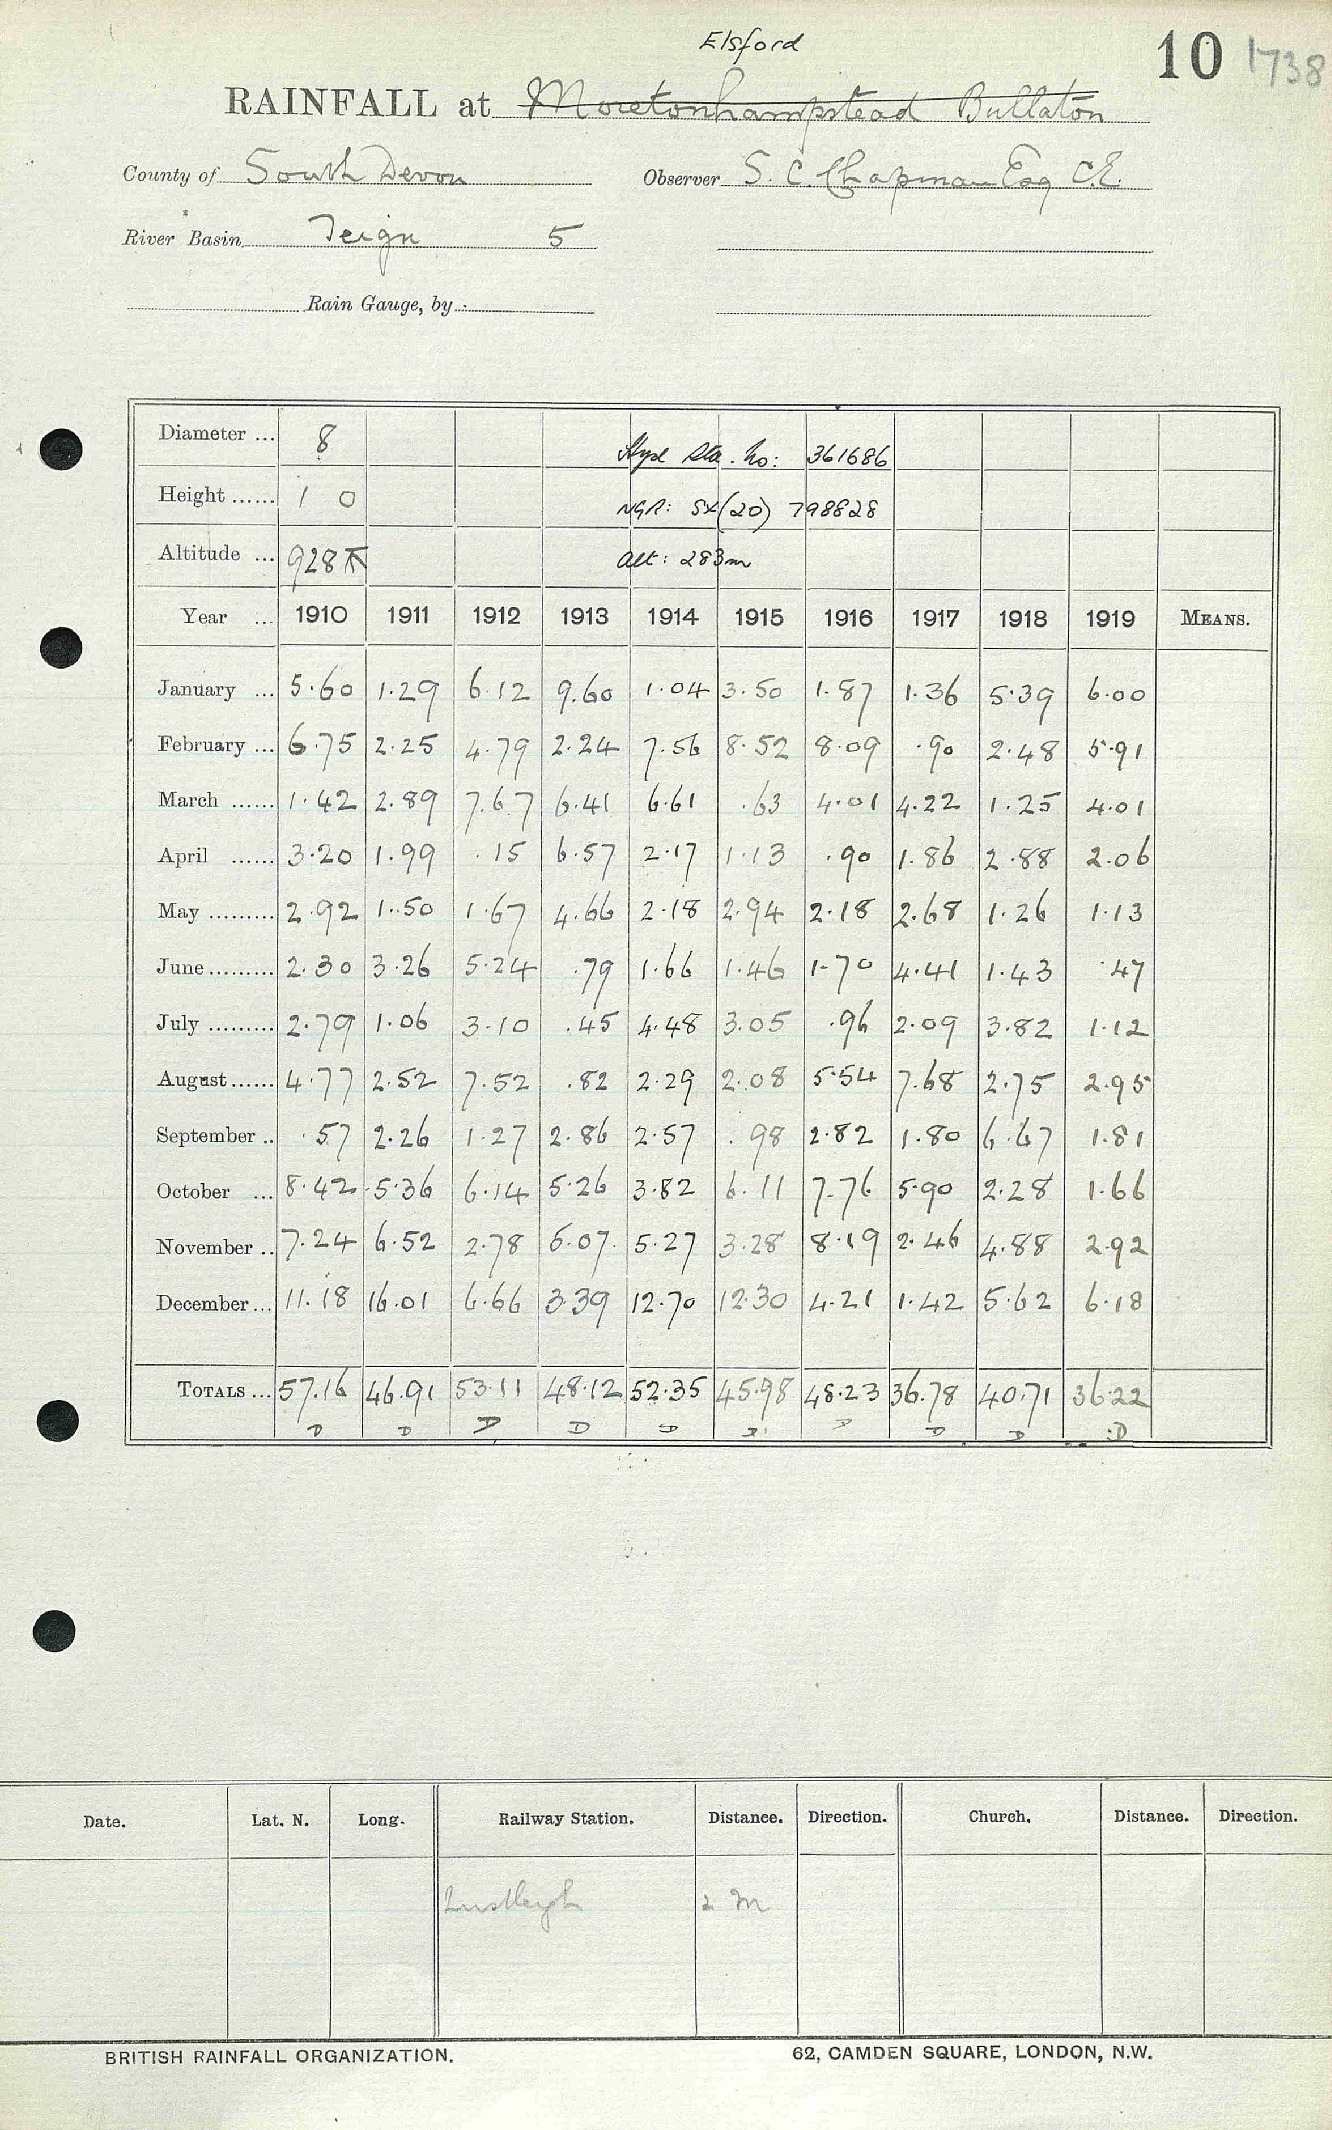 Elsford
10 1738
RAINFALL at Moretonhampstead Bullaton
County of South Devon Observer S. C. Chapman Esq C.E.
River Basin Teign 5
Rain Gauge, by :
Diameter ... 8 Hyd Sta. No: 361686
Height ...... 1 0 NGR: SX(20) 798828
Altitude ... 928 Alt: 283m
Year ... 1910 1911 1912 1913 1914 1915 1916 1917 1918 1919 MEANS.
January ... 5.60 1.29 6.12 9.60 1.04 3.50 1.87 1.36 5.39 6.00
February ... 6.75 2.25 4.79 2.24 7.56 8.52 8.09 .90 2.48 5.91
March ...... 1.42 2.89 7.67 6.41 6.61 .63 4.01 4.22 1.25 4.01
April ...... 3.20 1.99 .15 6.57 2.17 1.13 .90 1.86 2.88 2.06
May ......... 2.92 1.50 1.67 4.66 2.18 2.94 2.18 2.68 1.26 1.13
June ......... 2.30 3.26 5.24 .79 1.66 1.46 1.70 4.41 1.43 .47
July ......... 2.79 1.06 3.10 .45 4.48 3.05 .96 2.09 3.82 1.12
August ...... 4.77 2.52 7.52 .82 2.29 2.08 5.54 7.68 2.75 2.95
September .. .57 2.26 1.27 2.86 2.57 .98 2.82 1.80 6.67 1.81
October ... 8.42 5.36 6.14 5.26 3.82 6.11 7.76 5.90 2.28 1.66
November .. 7.24 6.52 2.78 6.07 5.27 3.28 8.19 2.46 4.88 2.92
December ... 11.18 16.01 6.66 3.39 12.70 12.30 4.21 1.42 5.62 6.18
TOTALS ... 57.16 46.91 53.11 48.12 52.35 45.98 48.23 36.78 40.71 36.22
D D D D D D D D D D
Date. Lat. N. Long. Railway Station. Distance. Direction. Church. Distance. Direction.
Lustleigh 2 m
BRITISH RAINFALL ORGANIZATION. 62, CAMDEN SQUARE, LONDON, N.W.